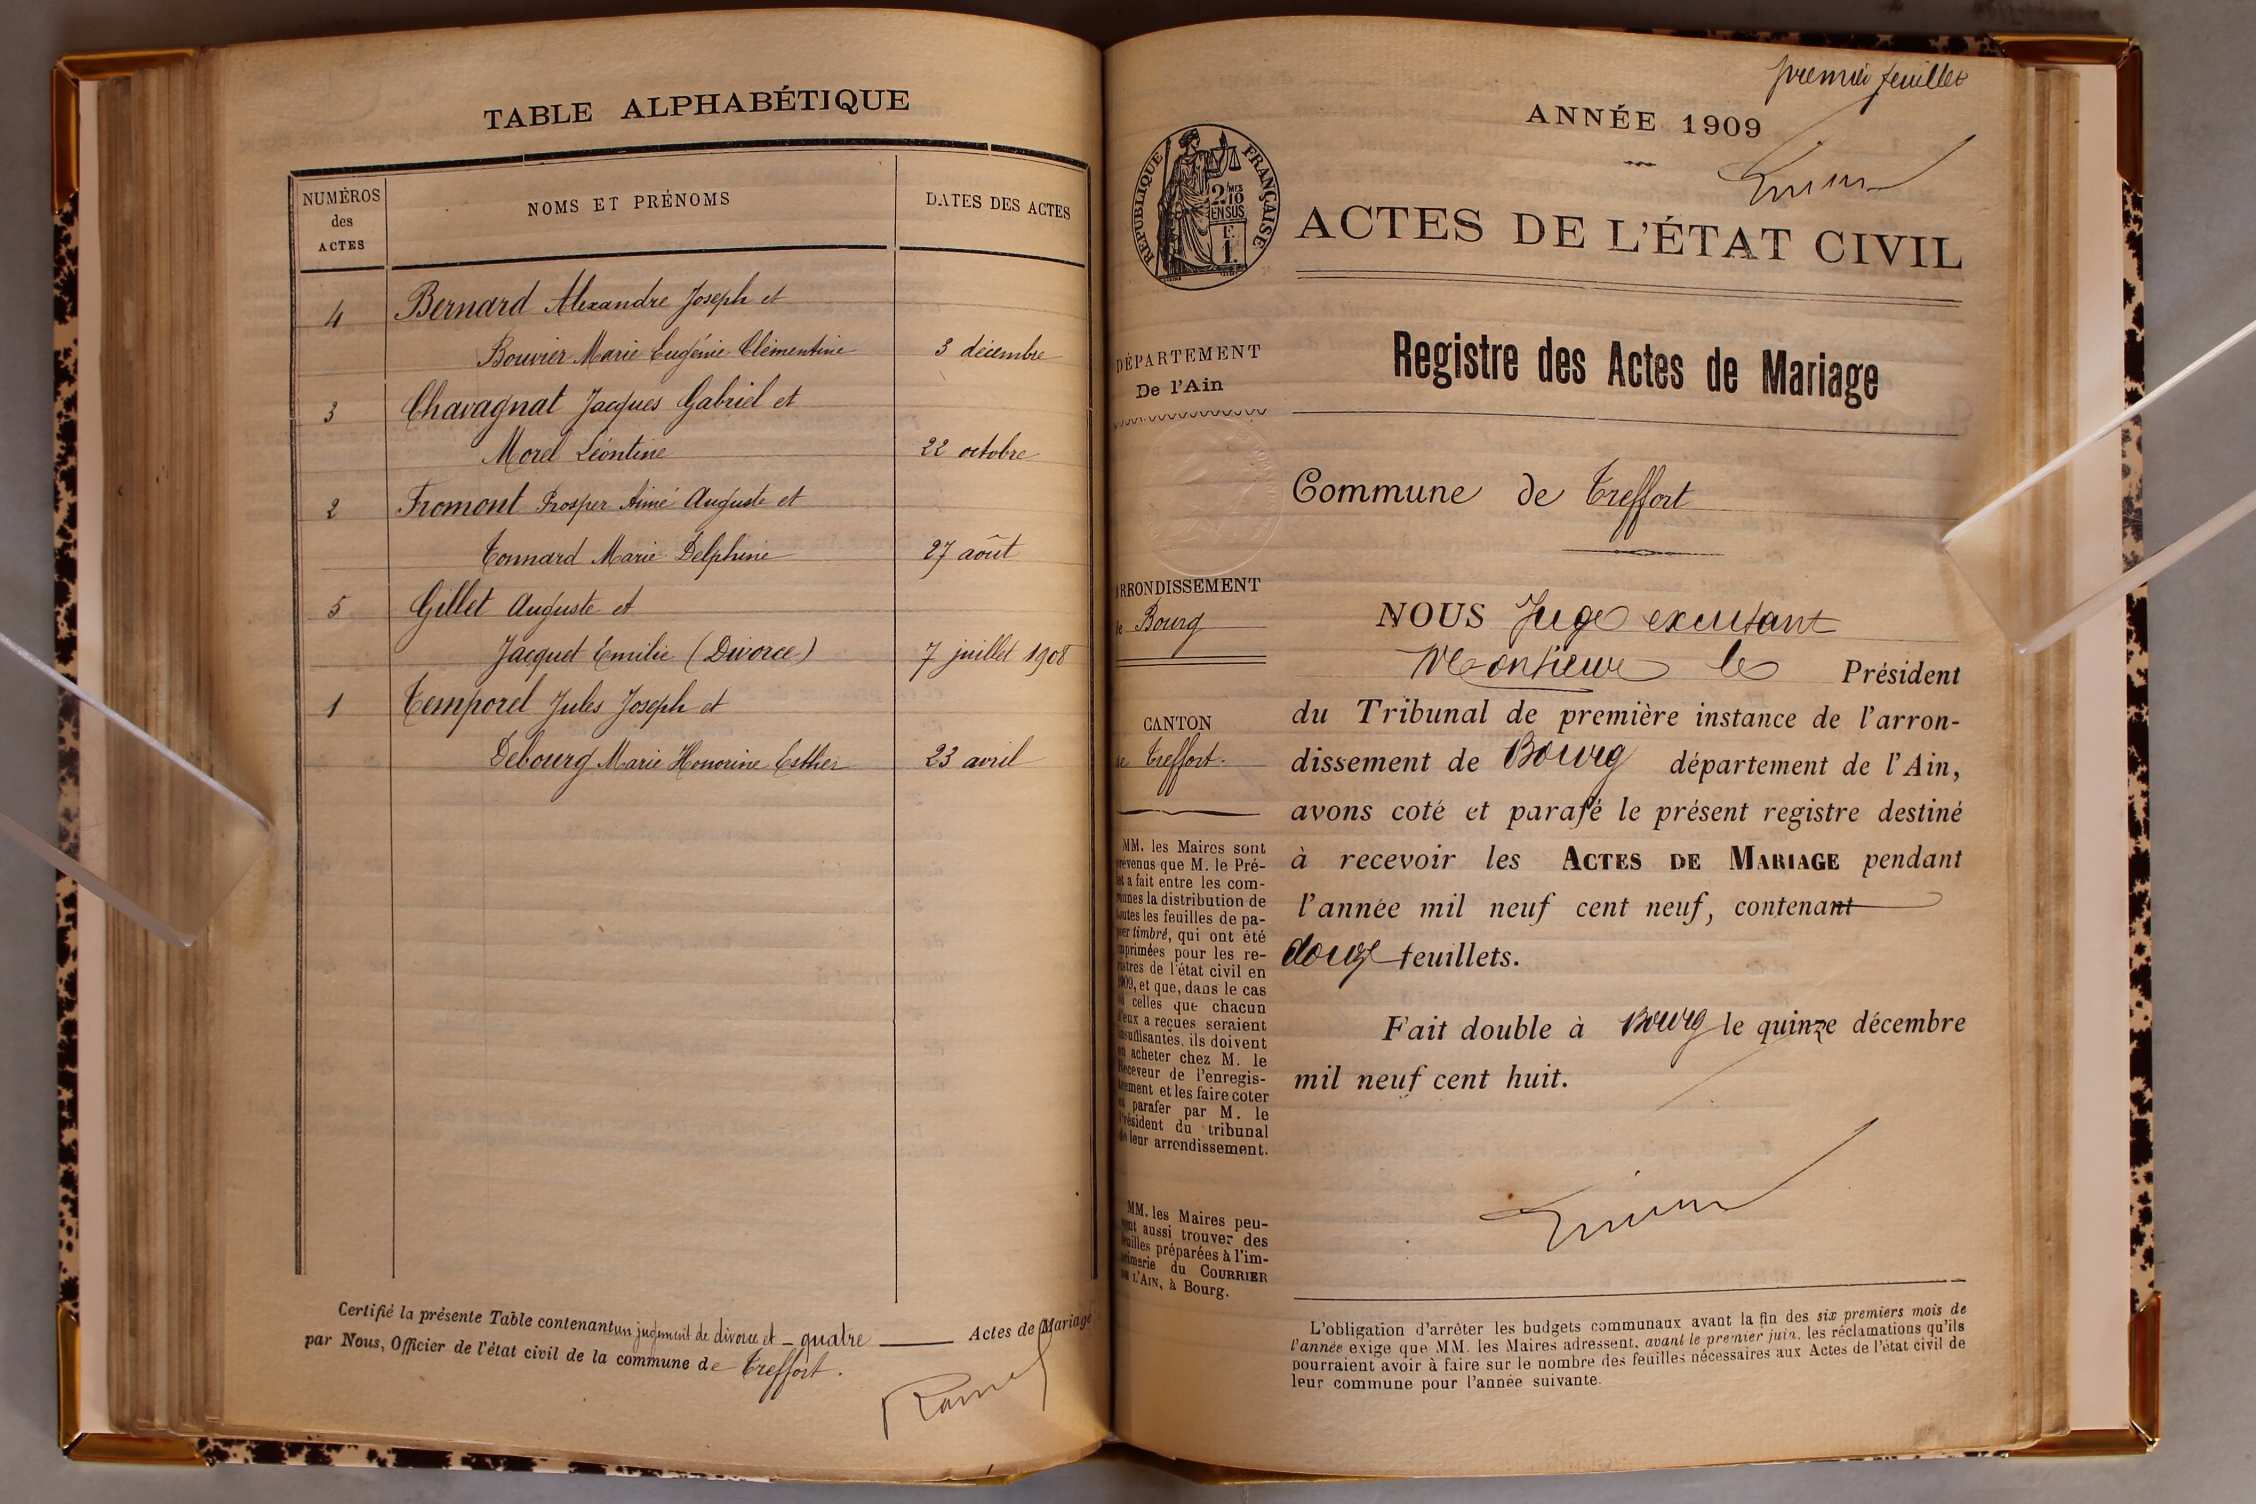 TABLE ALPHABÉTIQUE
NUMÉROS
des
ACTES
NOMS ET PRÉNOMS
DATES DES ACTES
4 Bernard Alexandre Joseph et
Bouvier Marie Eugénie Clémentine 3 décembre
3 Chavagnat Jacques Gabriel et
Morel Léontine 22 octobre
2 Fromont Prosper Aimé Auguste et
Tonnard Marie Delphine 27 août
5 Gillet Auguste et
Jacquet Émilie (Divorce) 7 juillet 1908
1 Temporel Jules Joseph et
Debourg Marie Honorine Esther 23 avril
Certifié la présente Table contenant un jugement de divorce et quatre Actes de Mariage
par Nous, Officier de l'état civil de la commune de Treffort.
premier feuillet
ANNÉE 1909
RÉPUBLIQUE FRANÇAISE
2/10 MES
EN SUS
F.
1.
ACTES DE L'ÉTAT CIVIL
Registre des Actes de Mariage
DÉPARTEMENT
De l'Ain
Commune de Treffort
ARRONDISSEMENT
de Bourg
CANTON
de Treffort.
MM. les Maires sont
prévenus que M. le Pré-
fet a fait entre les com-
munes la distribution de
toutes les feuilles de pa-
pier timbré, qui ont été
imprimées pour les re-
gistres de l'état civil en
1909, et que, dans le cas
où celles que chacun
d'eux a reçues seraient
insuffisantes, ils doivent
en acheter chez M. le
Receveur de l'enregis-
trement et les faire coter
et parafer par M. le
Président du tribunal
de leur arrondissement.
MM. les Maires peu-
vent aussi trouver des
feuilles préparées à l'im-
primerie du COURRIER
DE L'AIN, à Bourg.
NOUS Juge
Monsieur le Président
du Tribunal de première instance de l'arron-
dissement de Bourg département de l'Ain,
avons coté et parafé le présent registre destiné
à recevoir les ACTES DE MARIAGE pendant
l'année mil neuf cent neuf, contenant
douze feuillets.
Fait double à Bourg le quinze décembre
mil neuf cent huit.
L'obligation d'arrêter les budgets communaux avant la fin des six premiers mois de
l'année exige que MM. les Maires adressent, avant le premier juin, les réclamations qu'ils
pourraient avoir à faire sur le nombre des feuilles nécessaires aux Actes de l'état civil de
leur commune pour l'année suivante.